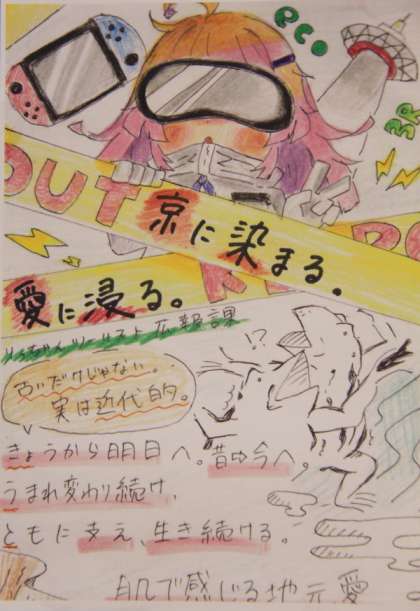 eco
OUT
京に染まる。
愛に浸る。
広報課
古いだけじゃない。
実は近代的。
!?
きょうから明日へ。昔から今へ。
うまれ変わり続け、
ともに支え、生き続ける。
肌で感じる地元愛